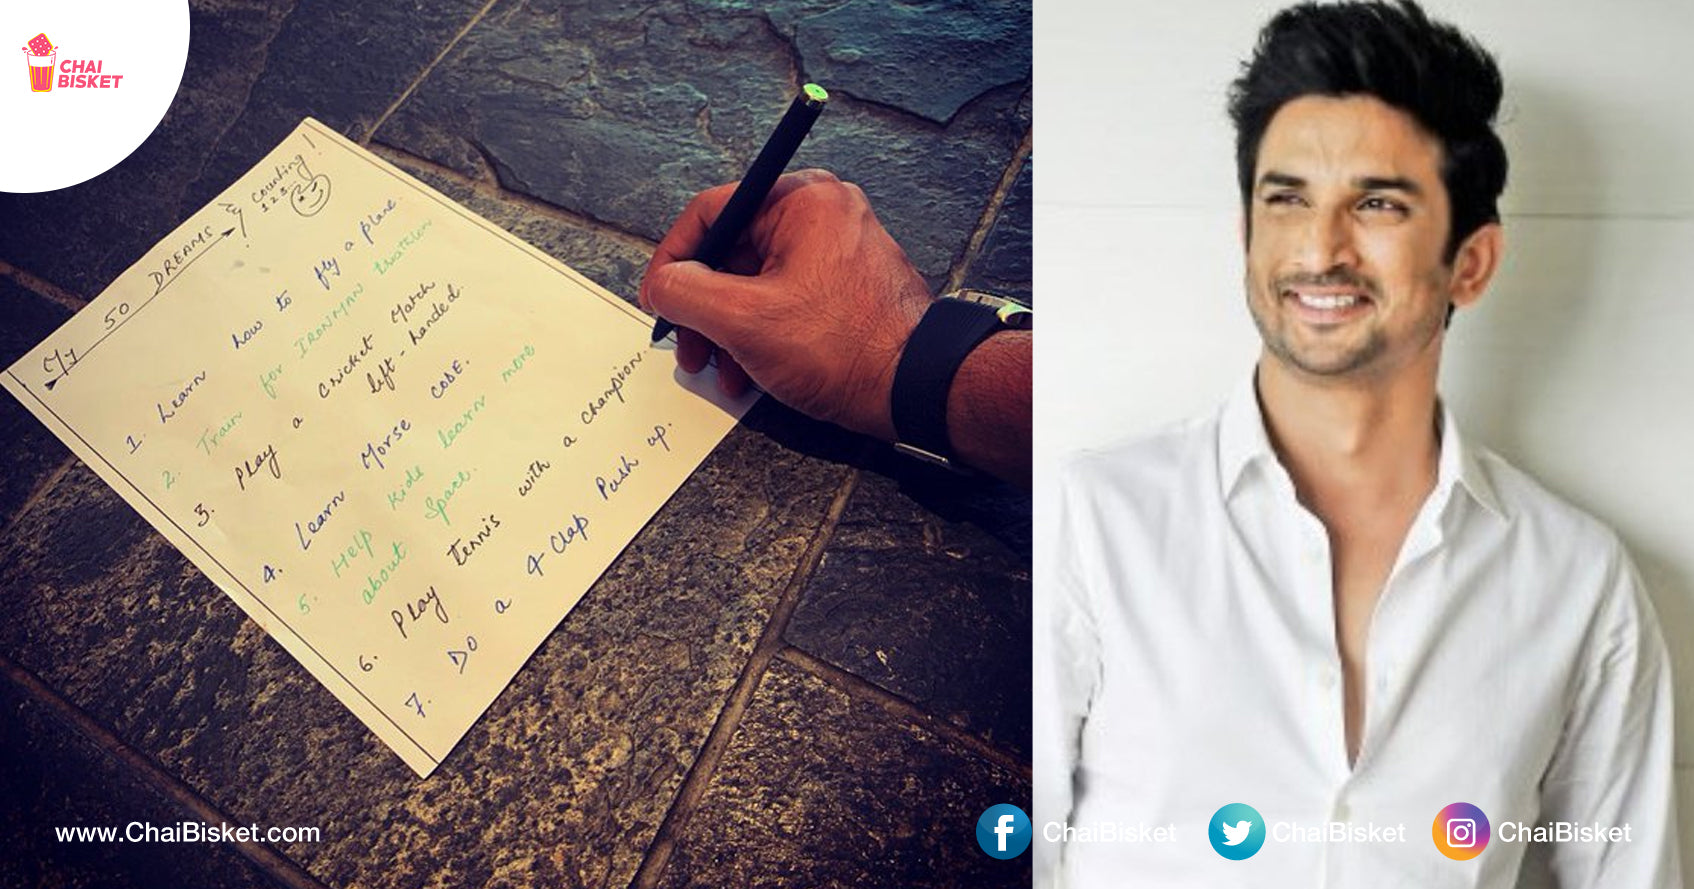 CHAI
BISKET
My 50 DREAMS & counting!
1 2 3...
1. Learn how to fly a plane.
2. Train for IRONMAN triathlon
3. Play a cricket Match
left-handed.
4. Learn Morse CODE.
5. Help kids learn more
about Space.
6. Play Tennis with a champion.
7. Do a 4 Clap Push up.
www.ChaiBisket.com
ChaiBisket
ChaiBisket
ChaiBisket